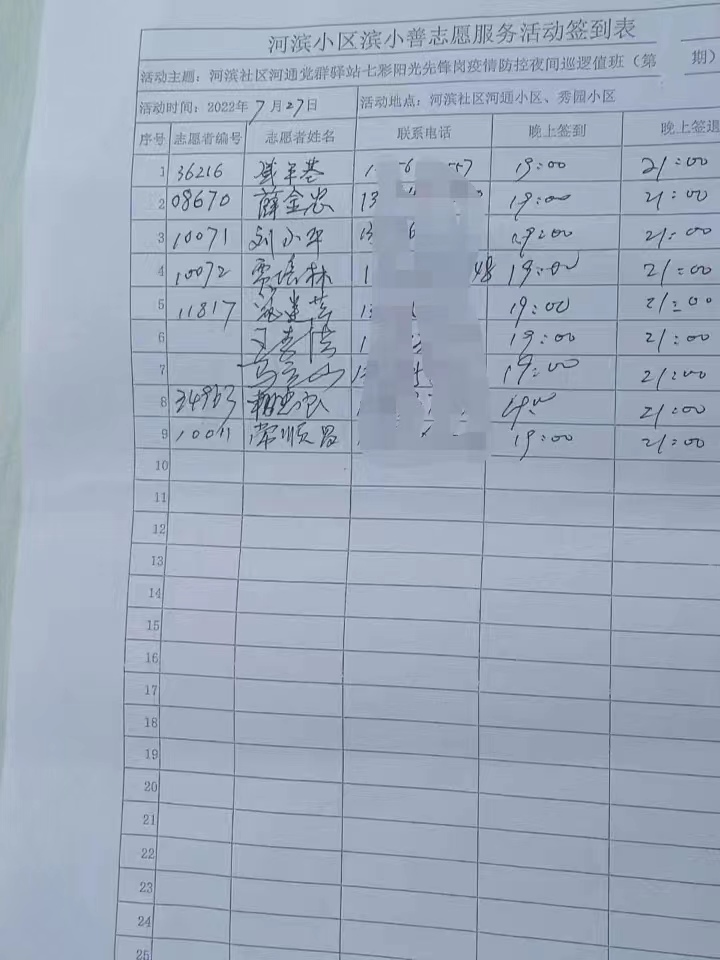 河滨小区滨小善志愿服务活动签到表
活动主题：河滨社区河通党群驿站七彩阳光先锋岗疫情防控夜间巡逻值班（第 期）
活动时间：2022年7月27日 活动地点：河滨社区河通小区、秀园小区
序号 志愿者编号 志愿者姓名 联系电话 晚上签到 晚上签退
1 36216 19:00 21:00
2 08670 薛金忠 13 19:00 21:00
3 10071 刘小平 13 6 19:00 21:00
4 10072 贾 林 1 48 19:00 21:00
5 11817 13 19:00 21:00
6 1 19:00 21:00
7 19:00 21:00
8 34963 21:00
9 10011 常顺昌 19:00 21:00
10
11
12
13
14
15
16
17
18
19
20
21
22
23
24
25